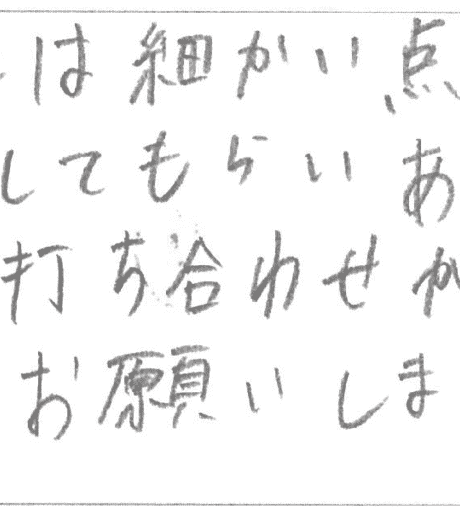 は細かい点
してもらいあ
打ち合わせか
お願いしま